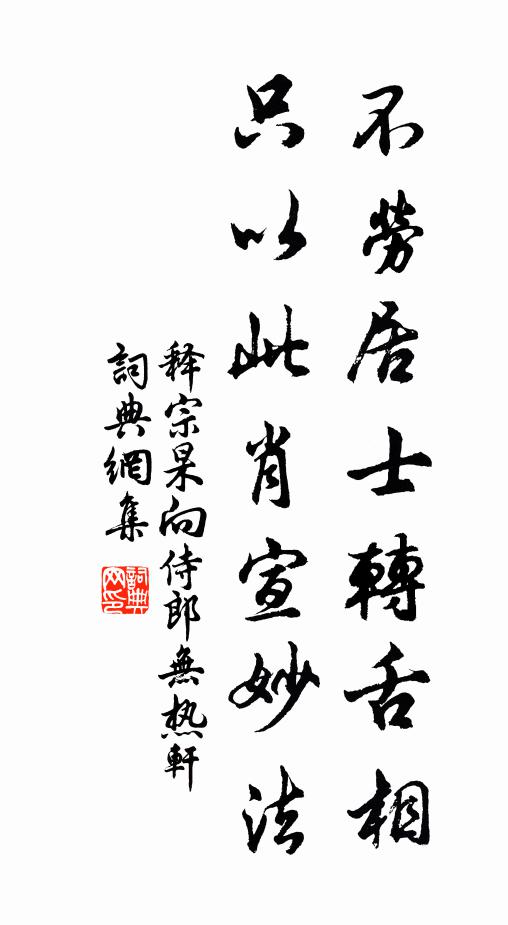 不勞居士轉舌相
只以此肖宣妙法
释宗杲向侍郎無热軒
詞典網集
詞典網印